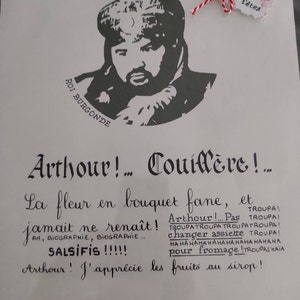 Fêtes
ROI BURGONDE
Arthour!... Couillère!...
La fleur en bouquet fane, et
jamait ne renaît!
AH, BIOGRAPHIE, BIOGRAPHIE...
SALSIFIS !!!!!
TROUPA!
Arthour!...Pas TROUPA!
TROUPATROUPATROUPATROUPA!
changer assiette TROUPA!
HAHAHAHAHAHAHAHAHAHAHA
pour fromage! TROUPA!KAÏA
Arthour! J'apprécie les fruits au sirop!